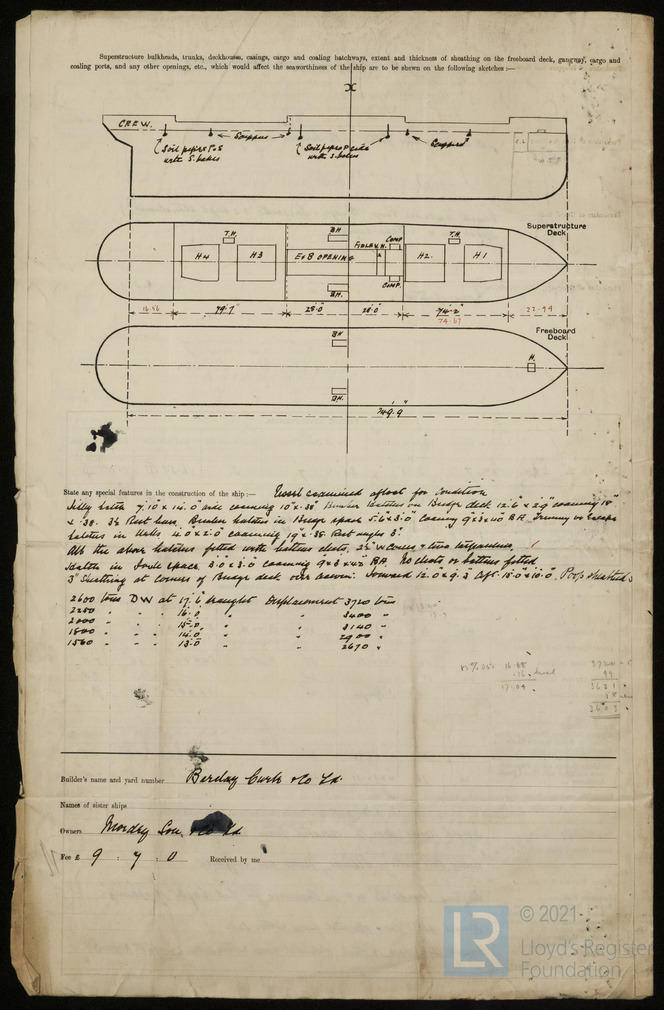 Superstructure bulkheads, trunks, deckhouses, casings, cargo and coaling hatchways, extent and thickness of sheathing on the freeboard deck, gangway, cargo and
coaling ports, and any other openings, etc., which would affect the seaworthiness of the ship are to be shewn on the following sketches:—
CREW.
Scuppers
Scuppers
Soil pipes P & S
with S. boxes
Soil pipes P side
with S. boxes
Superstructure
Deck
B.H
T.H.
FIDLEY. H.
COMP.
T.H.
H4
H3
E & B OPENING
H2.
H1
B.H.
COMP.
16.56
79.7"
28.0
28.0
74.2"
74.67
22.94
Freeboard
Deck
BH
H.
B.H.
249.9"
State any special features in the construction of the ship:— Vessel examined afloat for condition
hatch 7.10" x 14.0" coaming 10" x .38" Bunker hatches on Bridge deck 12.6" x 2.9" coaming 18"
x .38. 3½ Rest bars. Bunker hatches in Bridge space 5.6 x 3.0 coaming 9 x 3 x 40 B.A.
hatches in Wells 4.0 x 2.0 coaming 19" x .35 Rest angles 3"
All the above hatches fitted with battens cleats, 2½" W covers & two tarpaulins.
Hatch in space 3.0 x 3.0 coaming 9 x 3 x 40 BA. No cleats or battens fitted
3" Sheathing at corners of Bridge deck over Forward 12.0 x 9.3 Aft 18.0 x 10.0. Poop sheathed
2600 tons DW at 17.6 draught Displacement 3720 tons
2280 " 16.0 " " 3400 "
2000 " 15.0 " " 3140 "
1800 " 14.0 " " 2900 "
1560 " 13.0 " " 2670 "
16.88
.16
17.04
3720
99
3621
3603
Builder's name and yard number Barclay Curle & Co Ld.
Names of sister ships
Owners Mordey Son & Co Ld
Fee £ 9 : 7 : 0 Received by me
LR
© 2021
Lloyd's Register
Foundation